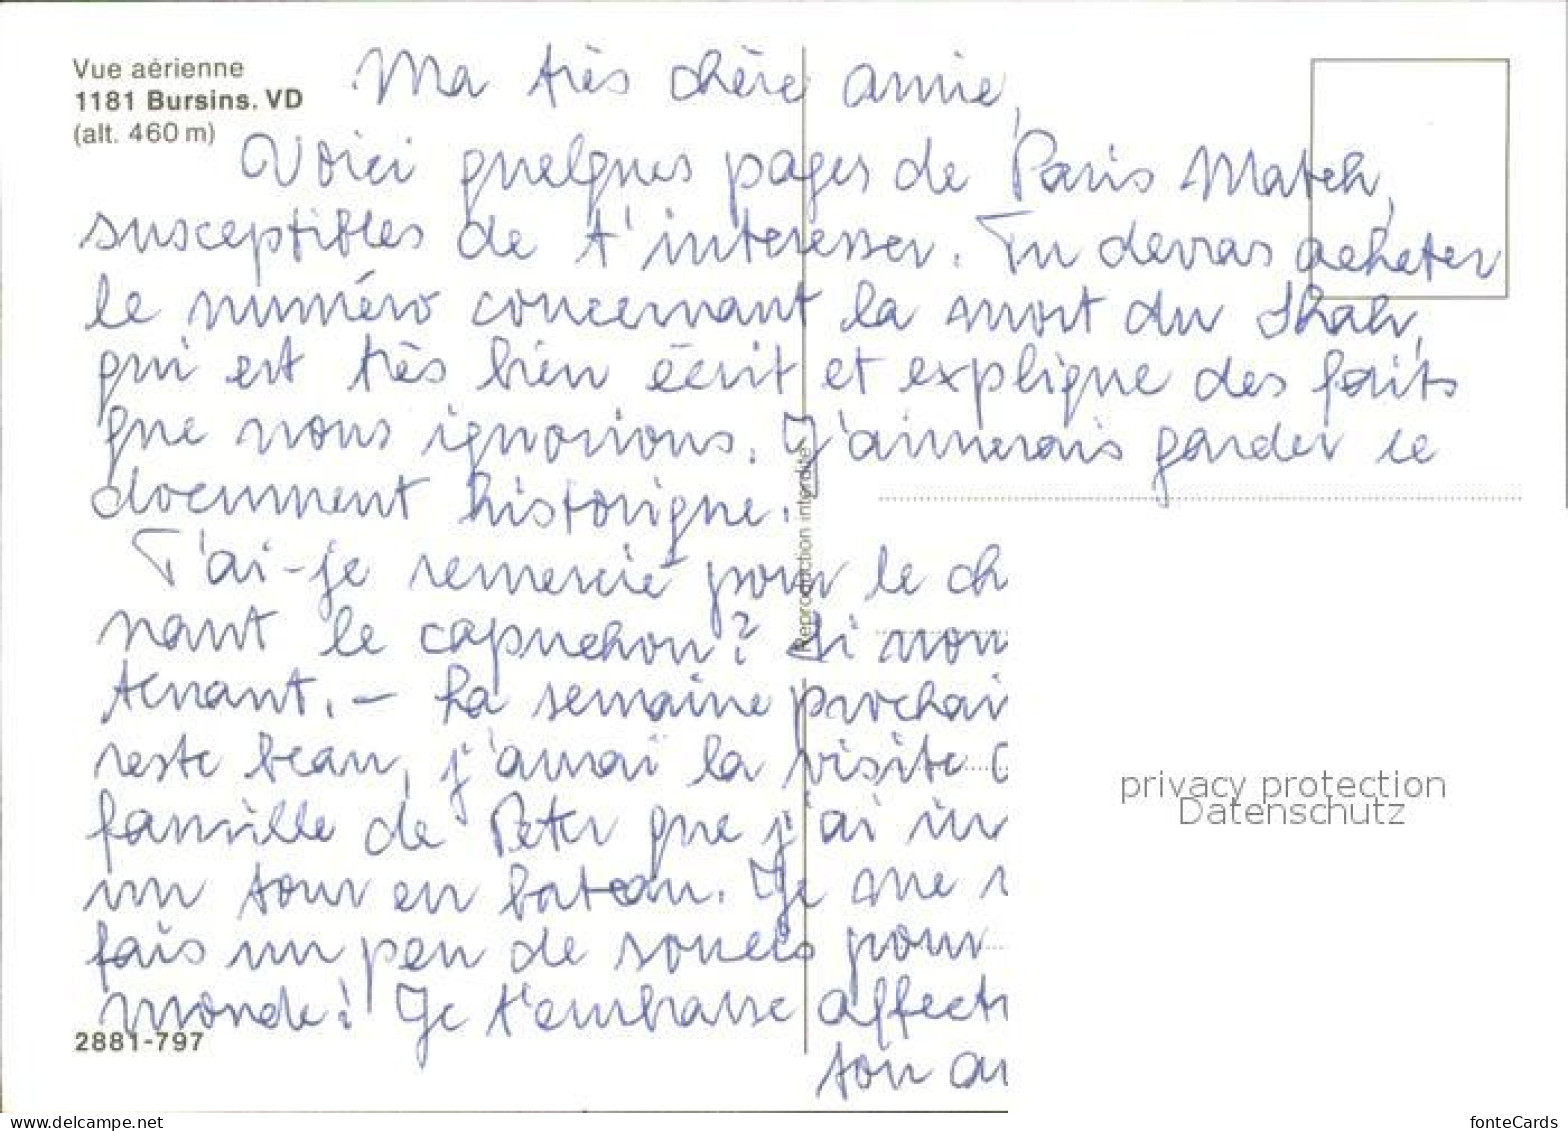 Vue aérienne
1181 Bursins. VD
(alt. 460 m)
Ma très chère amie,
Voici quelques pages de Paris Match,
susceptibles de t'intéresser. Tu devras acheter
le numéro concernant la mort du Shah,
qui est très bien écrit et explique des faits
que nous ignorions. J'aimerais garder ce
document historique.
T'ai-je remercié pour le ch
nant le capuchon? Si non
tenant. — La semaine prochai
reste beau, j'aurai la visite
famille de Peter que j'ai in
un tour en bateau. Je me
fais un peu de soucis pour
monde! Je t'embrasse affect
ton
Reproduction interdite
2881-797
privacy protection
Datenschutz
www.delcampe.net
fonteCards